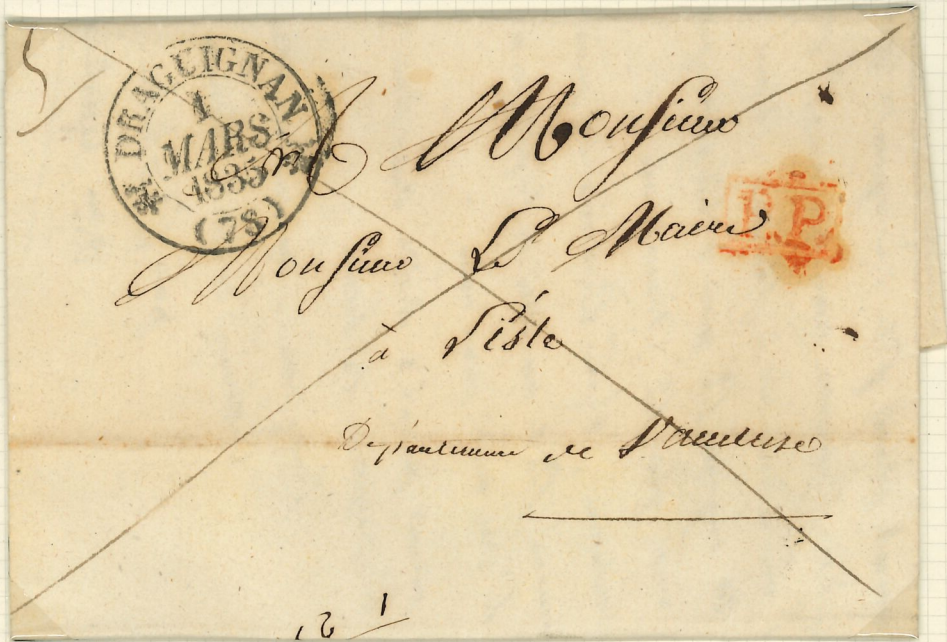 DRAGUIGNAN
1
MARS
1835
(78)
P.P.
Monsieur
Monsieur Le Maire
à L'isle
Département de Vaucluse